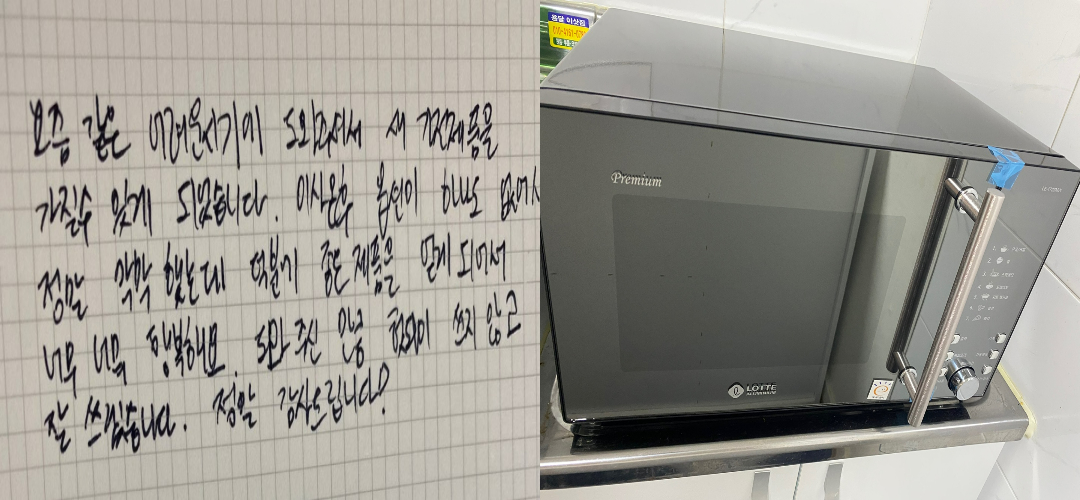 요즘 같은 어려운시기에 도와주셔서 새 가전제품을
가질수 있게 되었습니다. 이사온후 옵션이 하나도 없어서
정말 막막 했는데 덕분에 좋은 제품을 얻게 되어서
너무 너무 행복해요. 도와 주신 만큼 헛되이 쓰지 않고
잘 쓰겠습니다. 정말 감사드립니다!
용달 이삿짐
Premium
LOTTE
ALUMINIUM